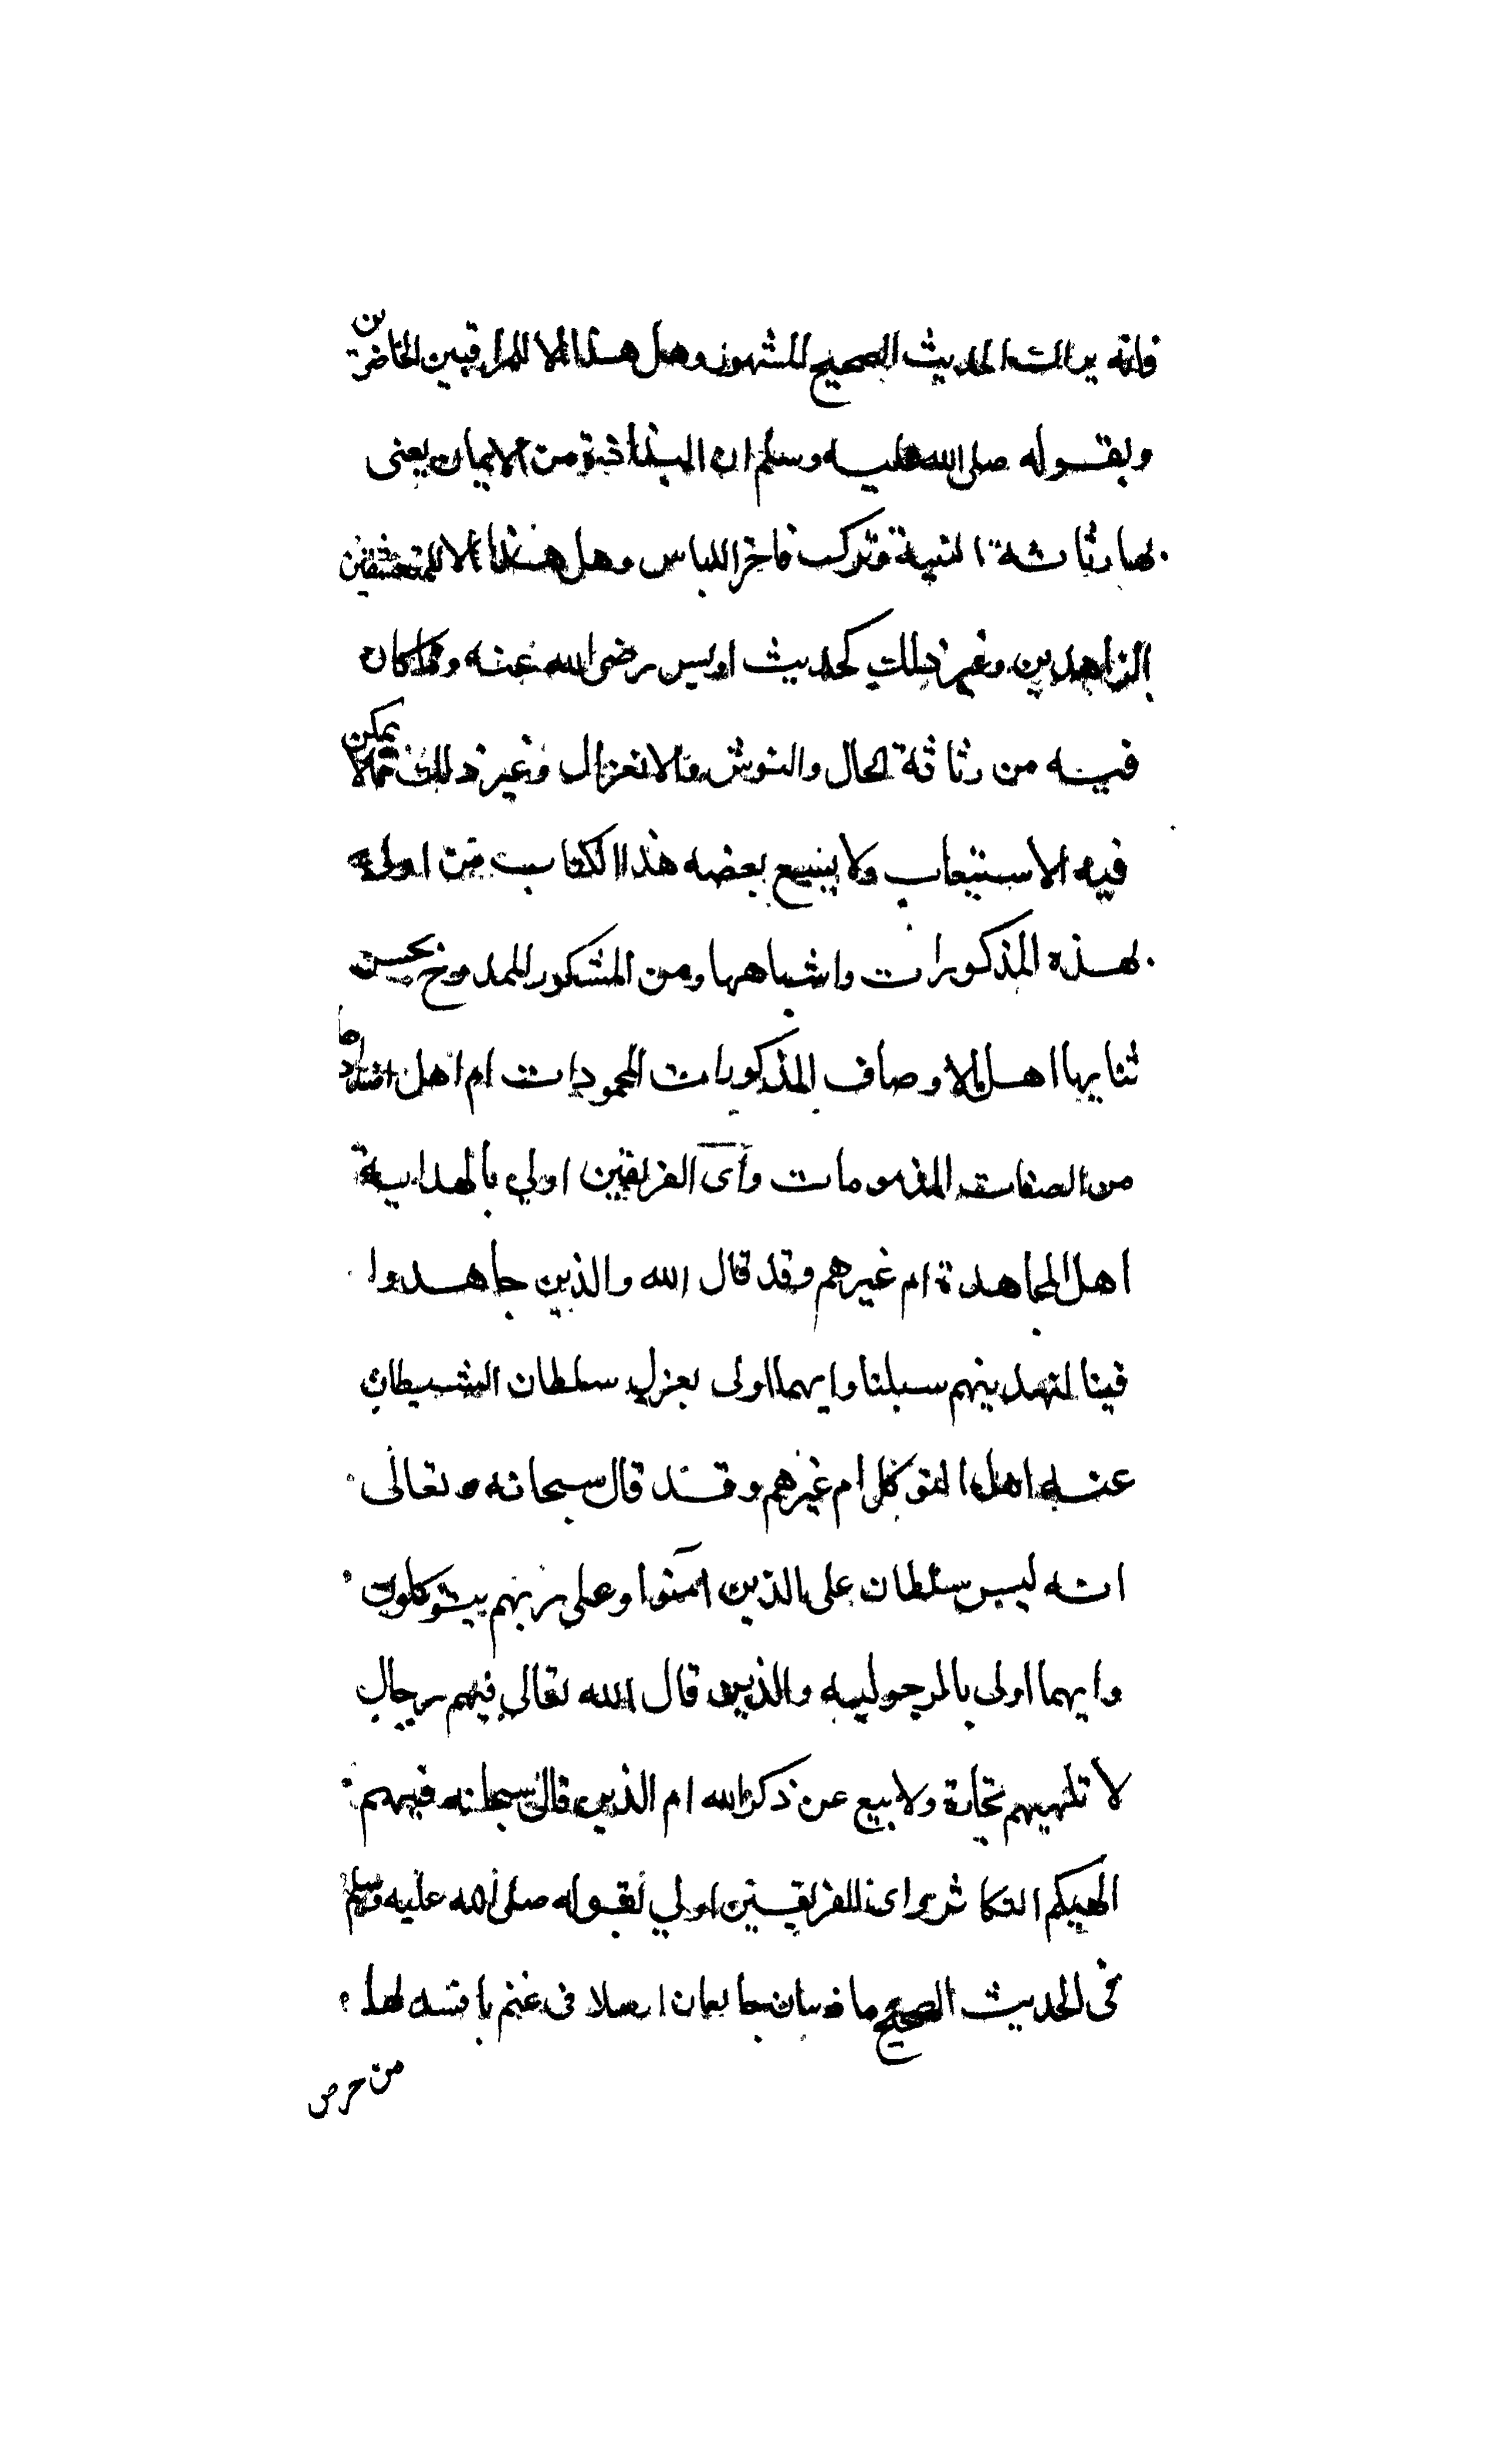 فانه يراك الحديث الصحيح المشهور وهل هذا الا للمراقبين الحاضرين
وبقوله صلى الله عليه وسلم ان البذاذة من الايمان يعنى
بها رثاثة الهيئة وترك فاخر اللباس وهل هذا الا للمتقشفين
الزاهدين وغير ذلك كحديث اويس رضى الله عنه وما كان
فيه من رثاثة الحال والتوحش والانعزال وغير ذلك مما لا يمكن
فيه الاستيعاب ولا يسع بعضه هذا الكتاب من اولى
بهذه المذكورات واشباهها ومن المشكور الممدوح بحسن
ثنايها اهل الاوصاف المذكورات المحمودات ام اهل اضدادها
من الصفات المذمومات وأى الفريقين اولي بالهداية
اهل المجاهدة ام غيرهم وقد قال الله والذين جاهدوا
فينا لنهدينهم سبلنا وايهما اولى بعزل سلطان الشيطان
عنه اهل التوكل ام غيرهم وقد قال سبحانه وتعالى
انه ليس سلطان على الذين آمنوا وعلى ربهم يتوكلون
وايهما اولى بالرجوليه والذين قال الله تعالي فيهم رجال
لا تلهيهم تجارة ولا بيع عن ذكر الله ام الذين قال سبحانه فيهم
الهيكم التكاثر واى الفريقين اولي لقوله صلى الله عليه وسلم
فى الحديث الصحيح ما ذيبان جايعان ارسلا فى غنم بافسد لها
من حرص